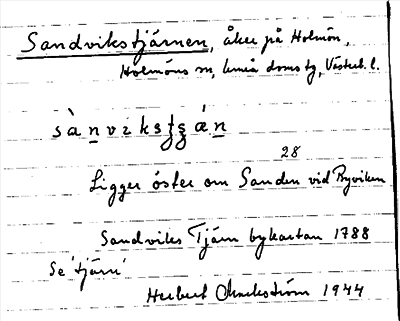 Sandvikstjärnen, åker på Holmön,
Holmöns sn, Umeå doms tg, Västerb. l.
sànvikstȿán
28
Ligger öster om Sanden vid Byviken
Sandviks Tjärn bykartan 1788
Se 'tjärn'
Herbert Markström 1944